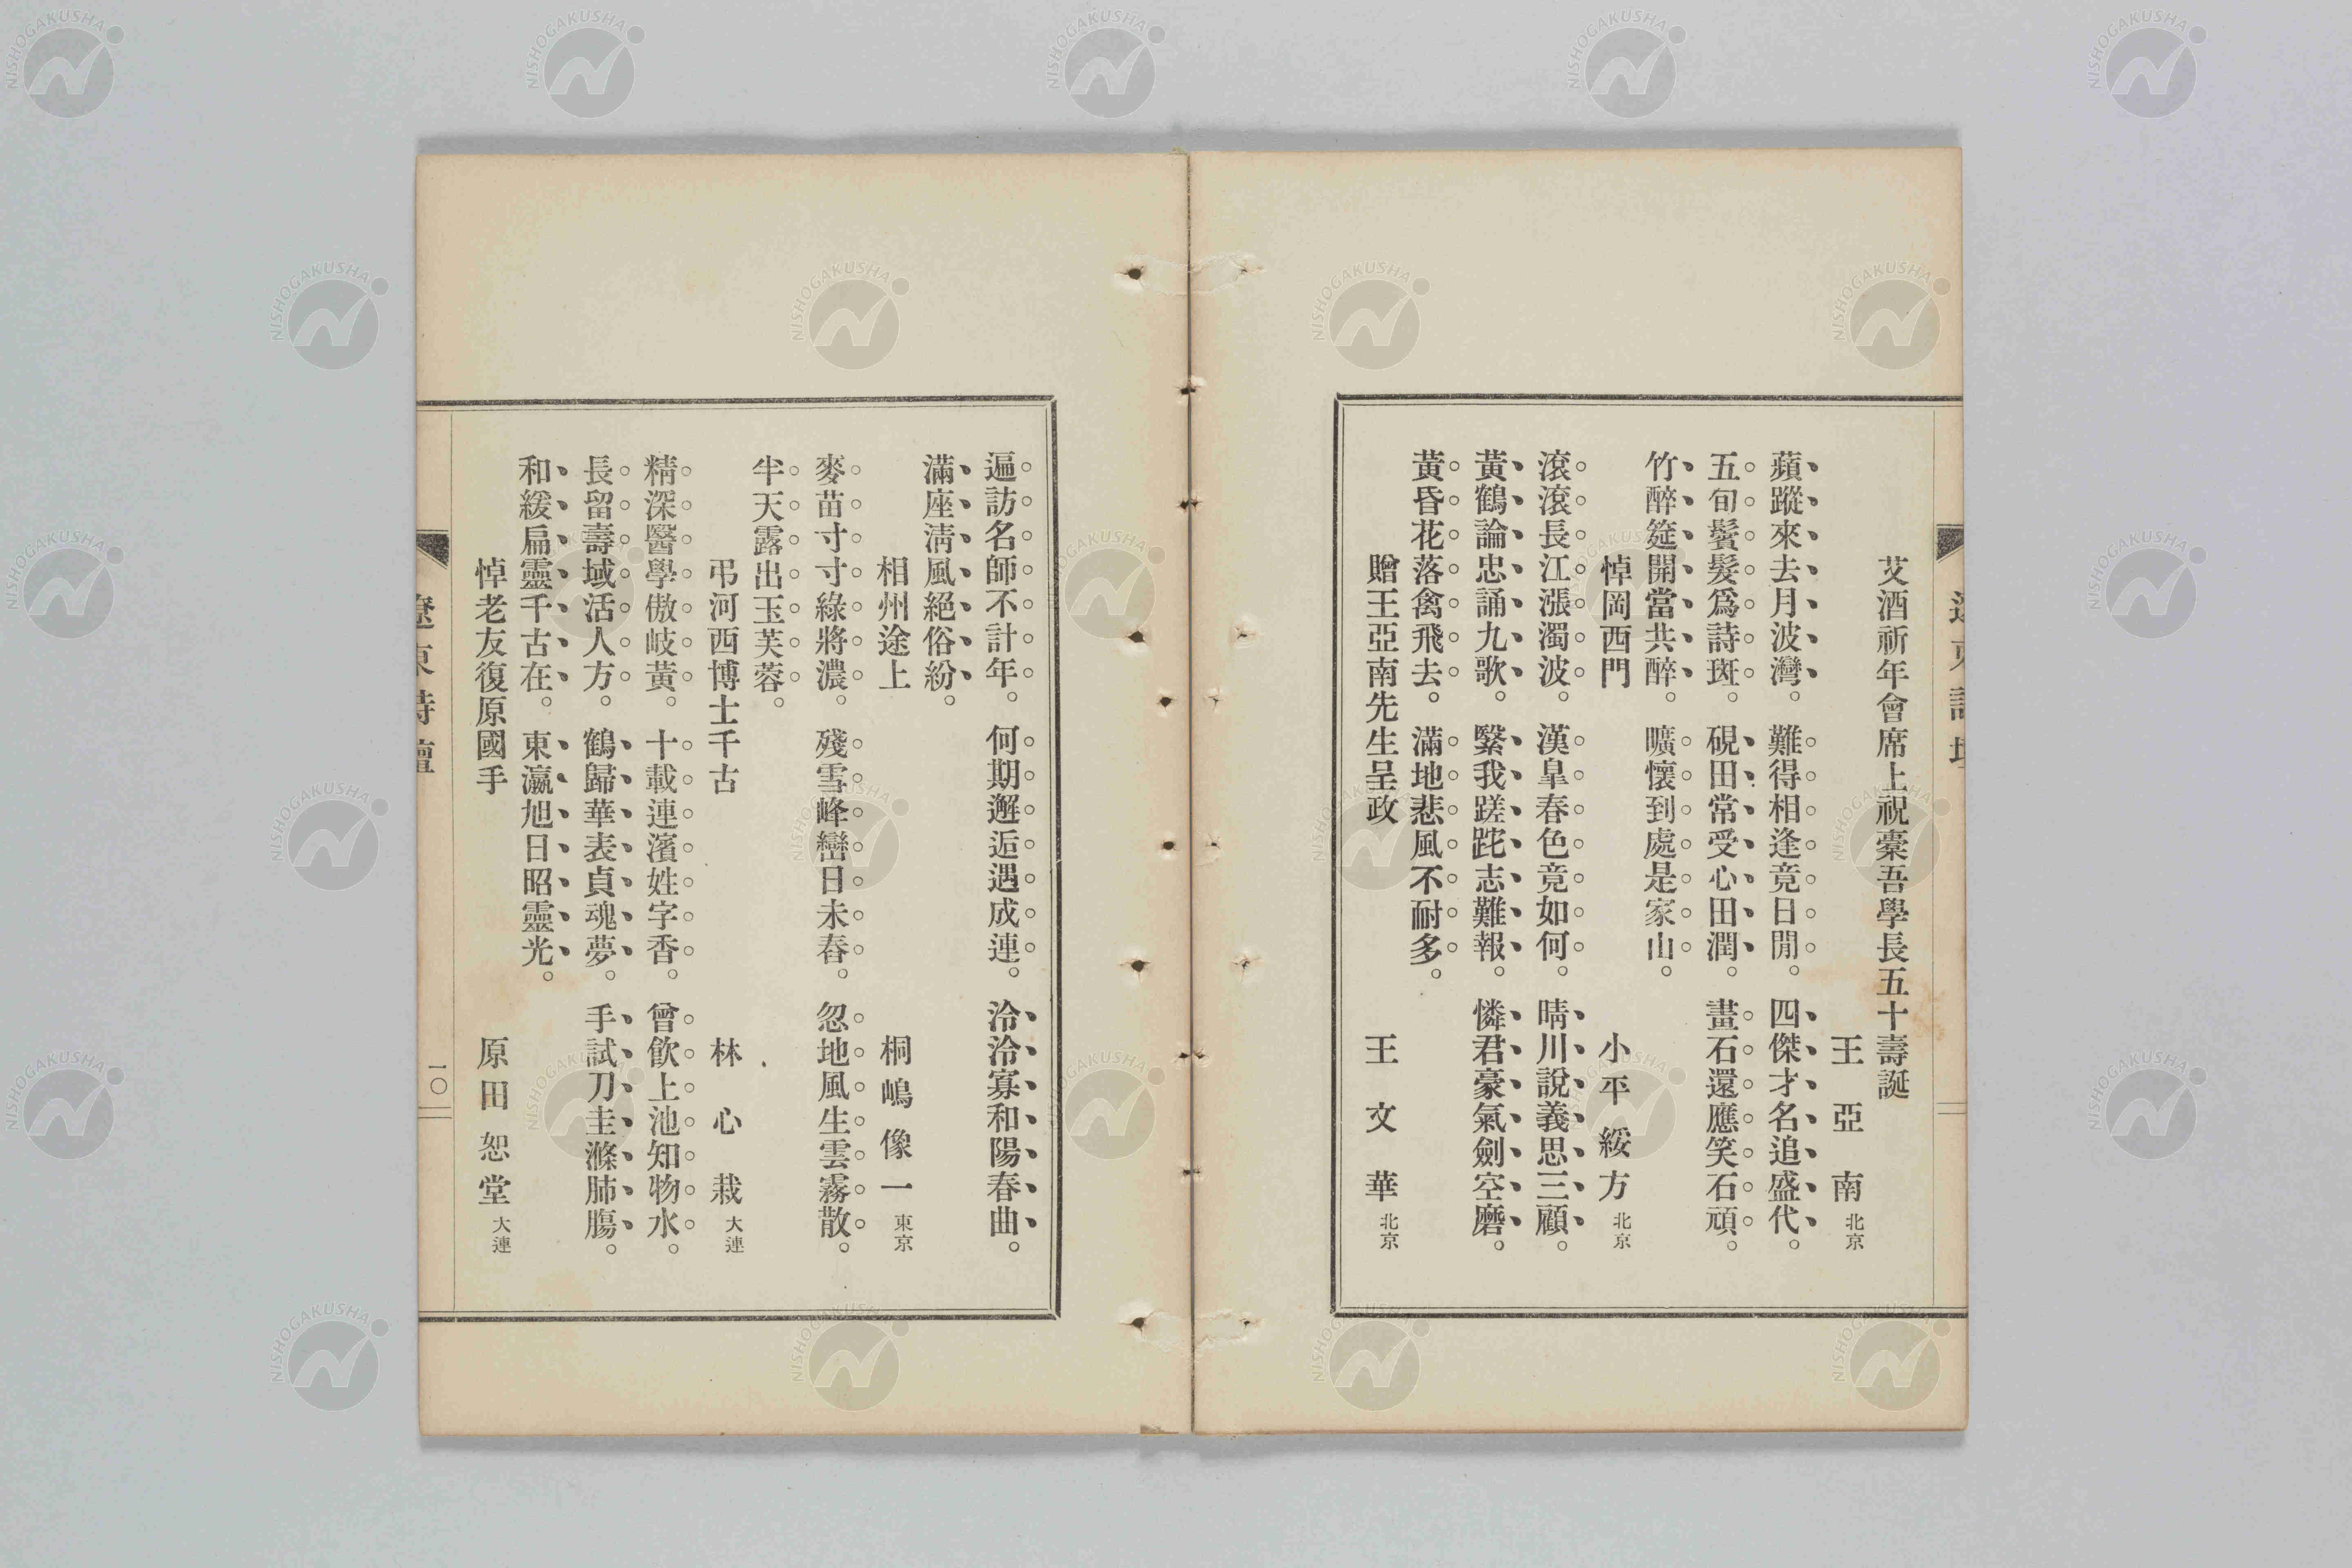 艾酒祈年會席上祝橐吾學長五十壽誕
王亞南 北京
蘋蹤來去月波灣。難得相逢竟日閒。四傑才名追盛代。
五旬鬢髮爲詩斑。硯田常受心田潤。畫石還應笑石頑。
竹醉筵開當共醉。曠懷到處是家山。
悼岡西門
小平綏方 北京
滾滾長江漲濁波。漢皐春色竟如何。晴川說義思三顧。
黃鶴論忠誦九歌。緊我蹉跎志難報。憐君豪氣劍空磨。
黃昏花落禽飛去。滿地悲風不耐多。
贈王亞南先生呈政
王文華 北京
遍訪名師不計年。何期邂逅遇成連。泠泠寡和陽春曲。
滿座淸風絕俗紛。
相州途上
桐嶋像一 東京
麥苗寸寸綠將濃。殘雪峰巒日未春。忽地風生雲霧散。
半天露出玉芙蓉。
弔河西博士千古
林心栽 大連
精深醫學傲岐黃。十載連濱姓字香。曾飮上池知物水。
長留壽域活人方。鶴歸華表貞魂夢。手試刀圭滌肺膓。
和緩扁靈千古在。東瀛旭日昭靈光。
悼老友復原國手
原田恕堂 大連
遼東詩壇
一〇
NISHOGAKUSHA